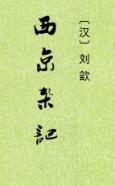 〔汉〕刘歆
西京杂記